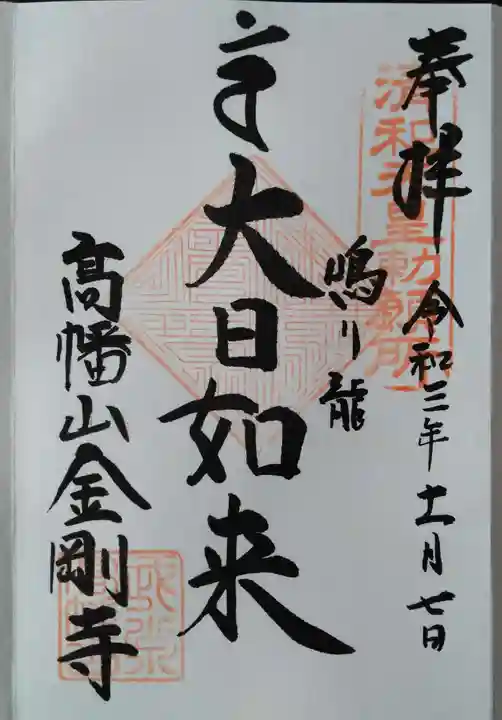 奉拝
令和三年十一月七日
清和天皇勅願所
鳴り龍
大日如来
髙幡山金剛寺